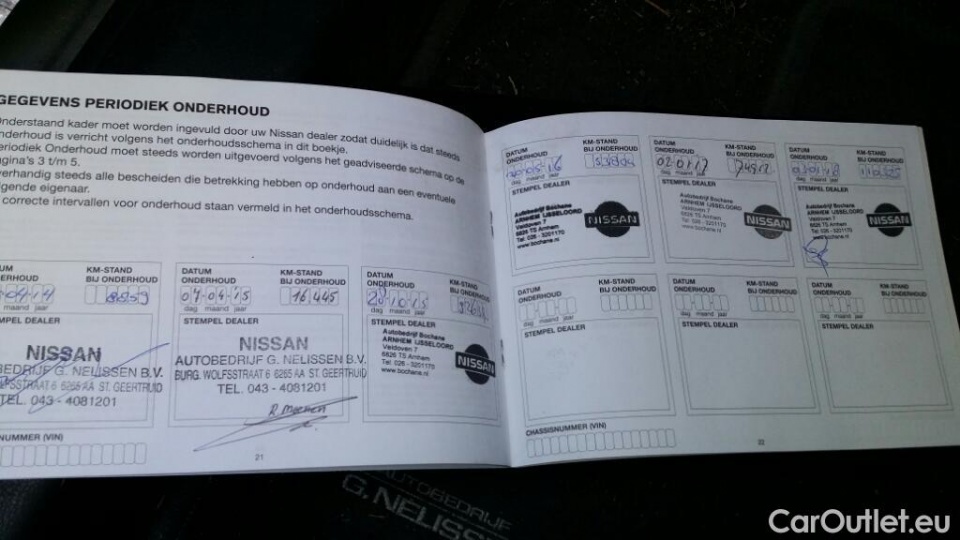 GEGEVENS PERIODIEK ONDERHOUD
Onderstaand kader moet worden ingevuld door uw Nissan dealer zodat duidelijk is dat steeds
nderhoud is verricht volgens het onderhoudsschema in dit boekje.
eriodiek Onderhoud moet steeds worden uitgevoerd volgens het geadviseerde schema op de
agina's 3 t/m 5.
verhandig steeds alle bescheiden die betrekking hebben op onderhoud aan een eventuele
lgende eigenaar.
correcte intervallen voor onderhoud staan vermeld in het onderhoudsschema.
KM-STAND
BIJ ONDERHOUD
maand jaar
MPEL DEALER
NISSAN
BEDRIJF G. NELISSEN B.V.
6265 AA ST. GEERTRUID
TEL. 043 - 4081201
DATUM
ONDERHOUD
KM-STAND
BIJ ONDERHOUD
07-04-15
16445
dag maand jaar
STEMPEL DEALER
NISSAN
AUTOBEDRIJF G. NELISSEN B.V.
BURG. WOLFSSTRAAT 6 6265 AA ST. GEERTRUID
TEL. 043 - 4081201
DATUM
ONDERHOUD
KM-STAND
BIJ ONDERHOUD
dag maand jaar
STEMPEL DEALER
Autobedrijf Bochane
ARNHEM IJSSELOORD
Veldoven 7
6826 TS Arnhem
Tel. 026 - 3201170
www.bochane.nl
NISSAN
SNUMMER (VIN)
21
DATUM
ONDERHOUD
KM-STAND
BIJ ONDERHOUD
dag maand jaar
STEMPEL DEALER
Autobedrijf Bochane
ARNHEM IJSSELOORD
Veldoven 7
6826 TS Arnhem
Tel. 026 - 3201170
www.bochane.nl
NISSAN
DATUM
ONDERHOUD
KM-STAND
BIJ ONDERHOUD
dag maand jaar
STEMPEL DEALER
Autobedrijf Bochane
ARNHEM IJSSELOORD
Veldoven 7
6826 TS Arnhem
Tel. 026 - 3201170
www.bochane.nl
NISSAN
DATUM
ONDERHOUD
KM-STAND
BIJ ONDERHOUD
dag maand jaar
STEMPEL DEALER
Autobedrijf Bochane
ARNHEM IJSSELOORD
Veldoven 7
6826 TS Arnhem
Tel. 026 - 3201170
www.bochane.nl
NISSAN
DATUM
ONDERHOUD
KM-STAND
BIJ ONDERHOUD
dag maand jaar
STEMPEL DEALER
DATUM
ONDERHOUD
KM-STAND
BIJ ONDERHOUD
dag maand jaar
STEMPEL DEALER
DATUM
ONDERHOUD
KM-STAND
BIJ ONDERHOUD
dag maand jaar
STEMPEL DEALER
CHASSISNUMMER (VIN)
22
AUTOBEDRIJF
G. NELISSE
CarOutlet.eu